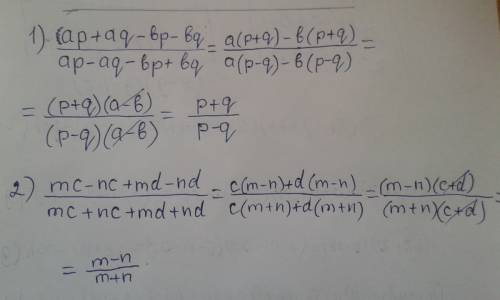 1) (ap+aq-вp-вq)/(ap-aq-вp+вq) = (a(p+q)-в(p+q))/(a(p-q)-в(p-q)) =
= ((p+q)(a-в))/((p-q)(a-в)) = (p+q)/(p-q)
2) (mc-nc+md-nd)/(mc+nc+md+nd) = (c(m-n)+d(m-n))/(c(m+n)+d(m+n)) = ((m-n)(c+d))/((m+n)(c+d)) =
= (m-n)/(m+n)